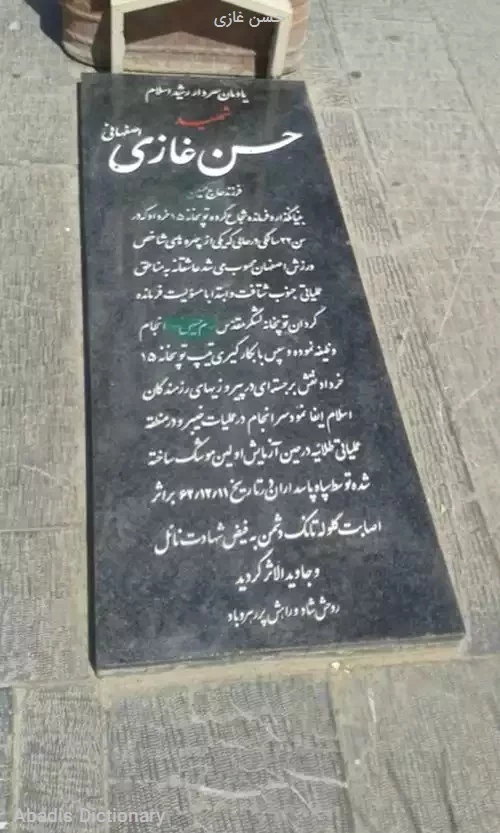 حسن غازی
یادمان سردار رشید اسلام
شهید
حسن غازی اصفهانی
فرزند حاج حسین
بنیانگذار و فرمانده شجاع گروه توپخانه ۱۵ خرداد که در
سن ۲۳ سالگی در حالی که یکی از چهره های شاخص
ورزش اصفهان محسوب می شد عاشقانه به مناطق
عملیاتی جنوب شتافت و ابتدا با مسؤلیت فرمانده
گردان توپخانه لشکر مقدس امام حسین انجام
وظیفه نموده و سپس با بکارگیری تیپ توپخانه ۱۵
خرداد نقش برجسته ای در پیروزیهای رزمندگان
اسلام ایفا نمود سرانجام در عملیات خیبر و در منطقه
عملیاتی طلائیه در حین آزمایش اولین موشک ساخته
شده توسط سپاه پاسداران در تاریخ ۶۲/۱۲/۱۱ بر اثر
اصابت گلوله تانک دشمن به فیض شهادت نائل
و جاوید الاثر گردید
روحش شاد و راهش پر رهرو باد
Abadis Dictionary